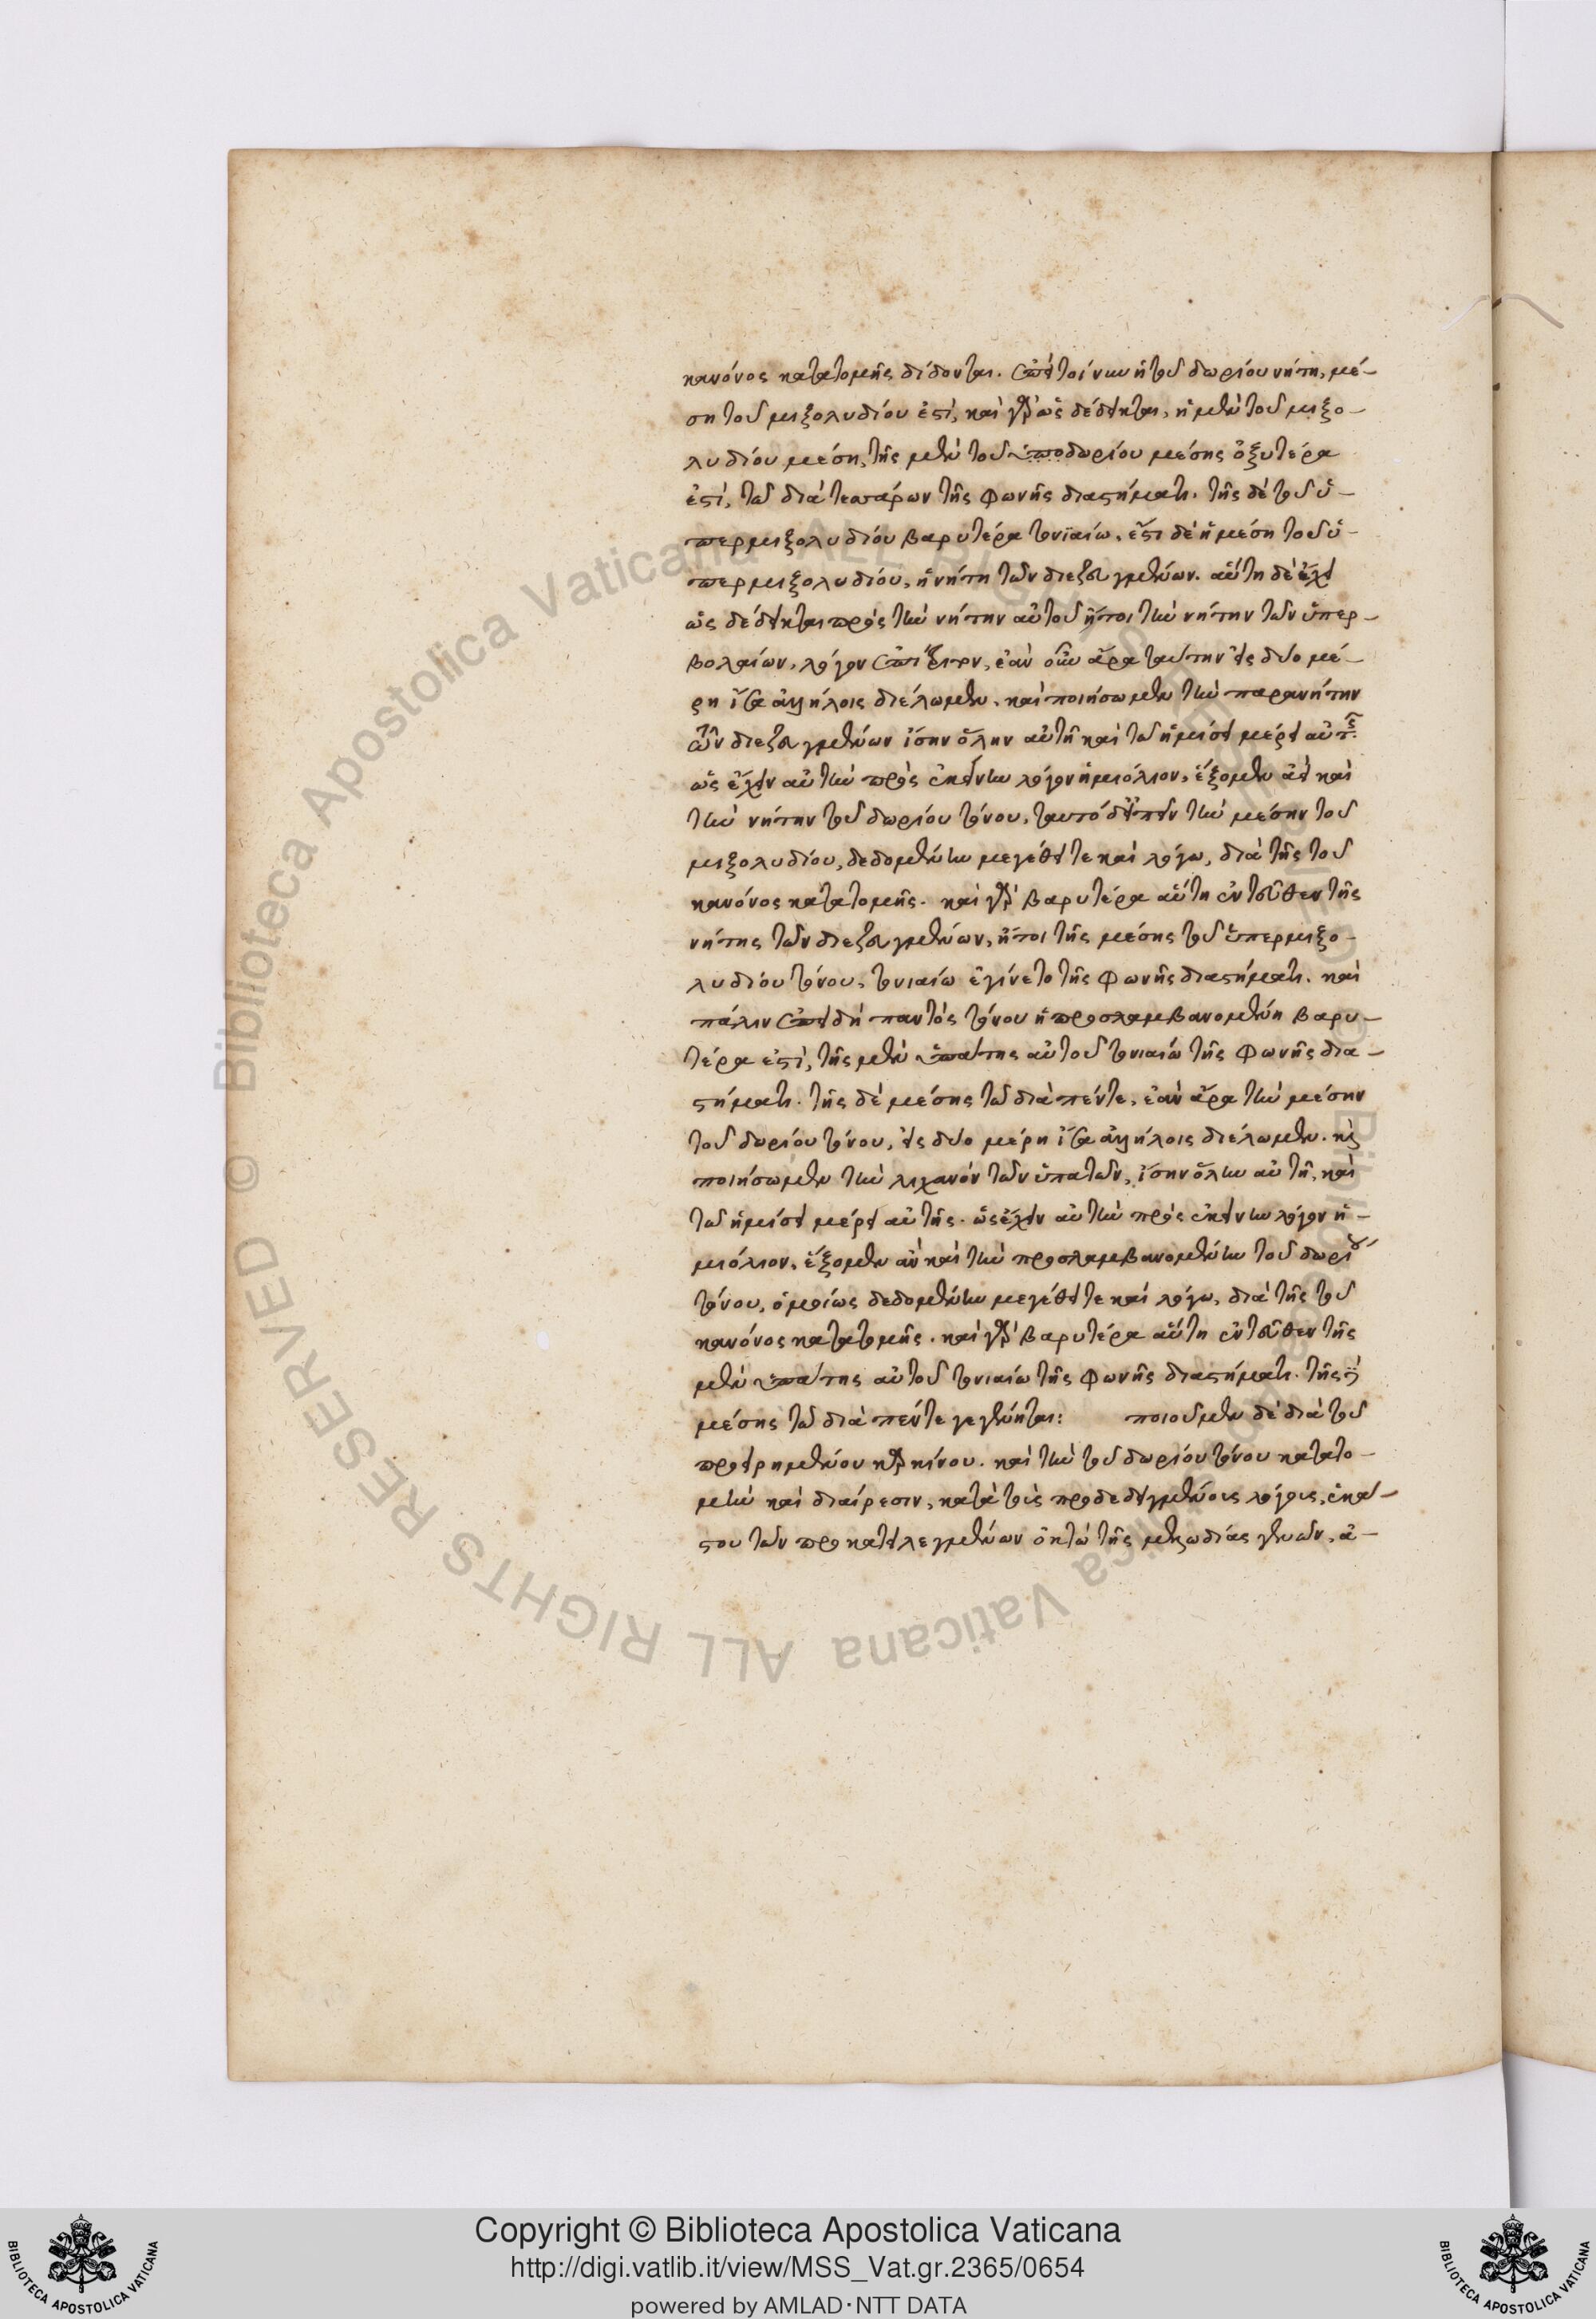 κανόνος κατατομῆς δίδονται. ἐπεὶ τοίνυν ἡ τοῦ δωρίου νήτη, μέ-
ση τοῦ μιξολυδίου ἐστὶ, καὶ γὰρ ὡς δέδεικται, ἡ μὲν τοῦ μιξο-
λυδίου μέση, τῆς μὲν τοῦ ὑποδωρίου μέσης ὀξυτέρα
ἐστὶ, τῶ διὰ τεσσάρων τῆς φωνῆς διαστήματι. τῆς δὲ τοῦ ὑ-
περμιξολυδίου βαρυτέρα τονϊαίω. ἔστι δὲ ἡ μέση τοῦ ὑ-
περμιξολυδίου, ἡ νήτη τῶν διεζευγμένων. αὕτη δὲ ἔχει
ὡς δέδεικται πρὸς τὴν νήτην αὐτοῦ ἤτοι τὴν νήτην τῶν ὑπερ-
βολαίων, λόγον ἐπίτριτον, ἐὰν οὖν ἄρα ταύτην εἰς δύο μέ-
ρη ἴσα ἀλλήλοις διέλωμεν. καὶ ποιήσωμεν τὴν παρανήτην
τῶν διεζευγμένων ἴσην ὅλην αὐτῆ καὶ τῶ ἡμίσει μέρει αὐτῆς.
ὡς ἔχειν αὐτὴν πρὸς ἐκείνην λόγον ἡμιόλιον, ἕξομεν ἀεὶ καὶ
τὴν νήτην τοῦ δωρίου τόνου, ταυτὸ δ' εἰπεῖν τὴν μέσην τοῦ
μιξολυδίου, δεδομένην μεγέθει τε καὶ λόγω, διὰ τῆς τοῦ
κανόνος κατατομῆς. καὶ γὰρ βαρυτέρα αὕτη ἐντεῦθεν τῆς
νήτης τῶν διεζευγμένων, ἤτοι τῆς μέσης τοῦ ὑπερμιξο-
λυδίου τόνου, τονιαίω ἐγίνετο τῆς φωνῆς διαστήματι. καὶ
πάλιν ἐπεὶ δὴ παντὸς τόνου ἡ προσλαμβανομένη βαρυ-
τέρα ἐστὶ, τῆς μὲν ὑπάτης αὐτοῦ τονιαίω τῆς φωνῆς δια-
στήματι. τῆς δὲ μέσης τῶ διὰ πέντε, ἐὰν ἄρα τὴν μέσην
τοῦ δωρίου τόνου, εἰς δύο μέρη ἴσα ἀλλήλοις διέλωμεν. κὶ
ποιήσωμεν τὴν λιχανὸν τῶν ὑπατῶν, ἴσην ὅλην αὐτῆ, καὶ
τῶ ἡμίσει μέρει αὐτῆς. ὡς ἔχειν αὐτὴν πρὸς ἐκείνην λόγον ἡ-
μιόλιον, ἕξομεν ἂν καὶ τὴν προσλαμβανομένην τοῦ δωρίου
τόνου, ὁμοίως δεδομένην μεγέθει τε καὶ λόγω, διὰ τῆς τοῦ
κανόνος κατατομῆς. καὶ γὰρ βαρυτέρα αὕτη ἐντεῦθεν τῆς
μὲν ὑπάτης αὐτοῦ τονιαίω τῆς φωνῆς διαστήματι. τῆς δὲ
μέσης τῶ διὰ πέντε γεγένηται: ποιοῦμεν δὲ διὰ τοῦ
προειρημένου καρκίνου. καὶ τὴν τοῦ δωρίου τόνου κατατο-
μὴν καὶ διαίρεσιν, κατὰ τοὺς προδεδειγμένους λόγους, ἑκά-
στου τῶν προκατειλεγμένων ὀκτὼ τῆς μελωδίας γενῶν, ἀ-
Copyright © Biblioteca Apostolica Vaticana
http://digi.vatlib.it/view/MSS_Vat.gr.2365/0654
powered by AMLAD·NTT DATA
BIBLIOTECA APOSTOLICA VATICANA
BIBLIOTECA APOSTOLICA VATICANA